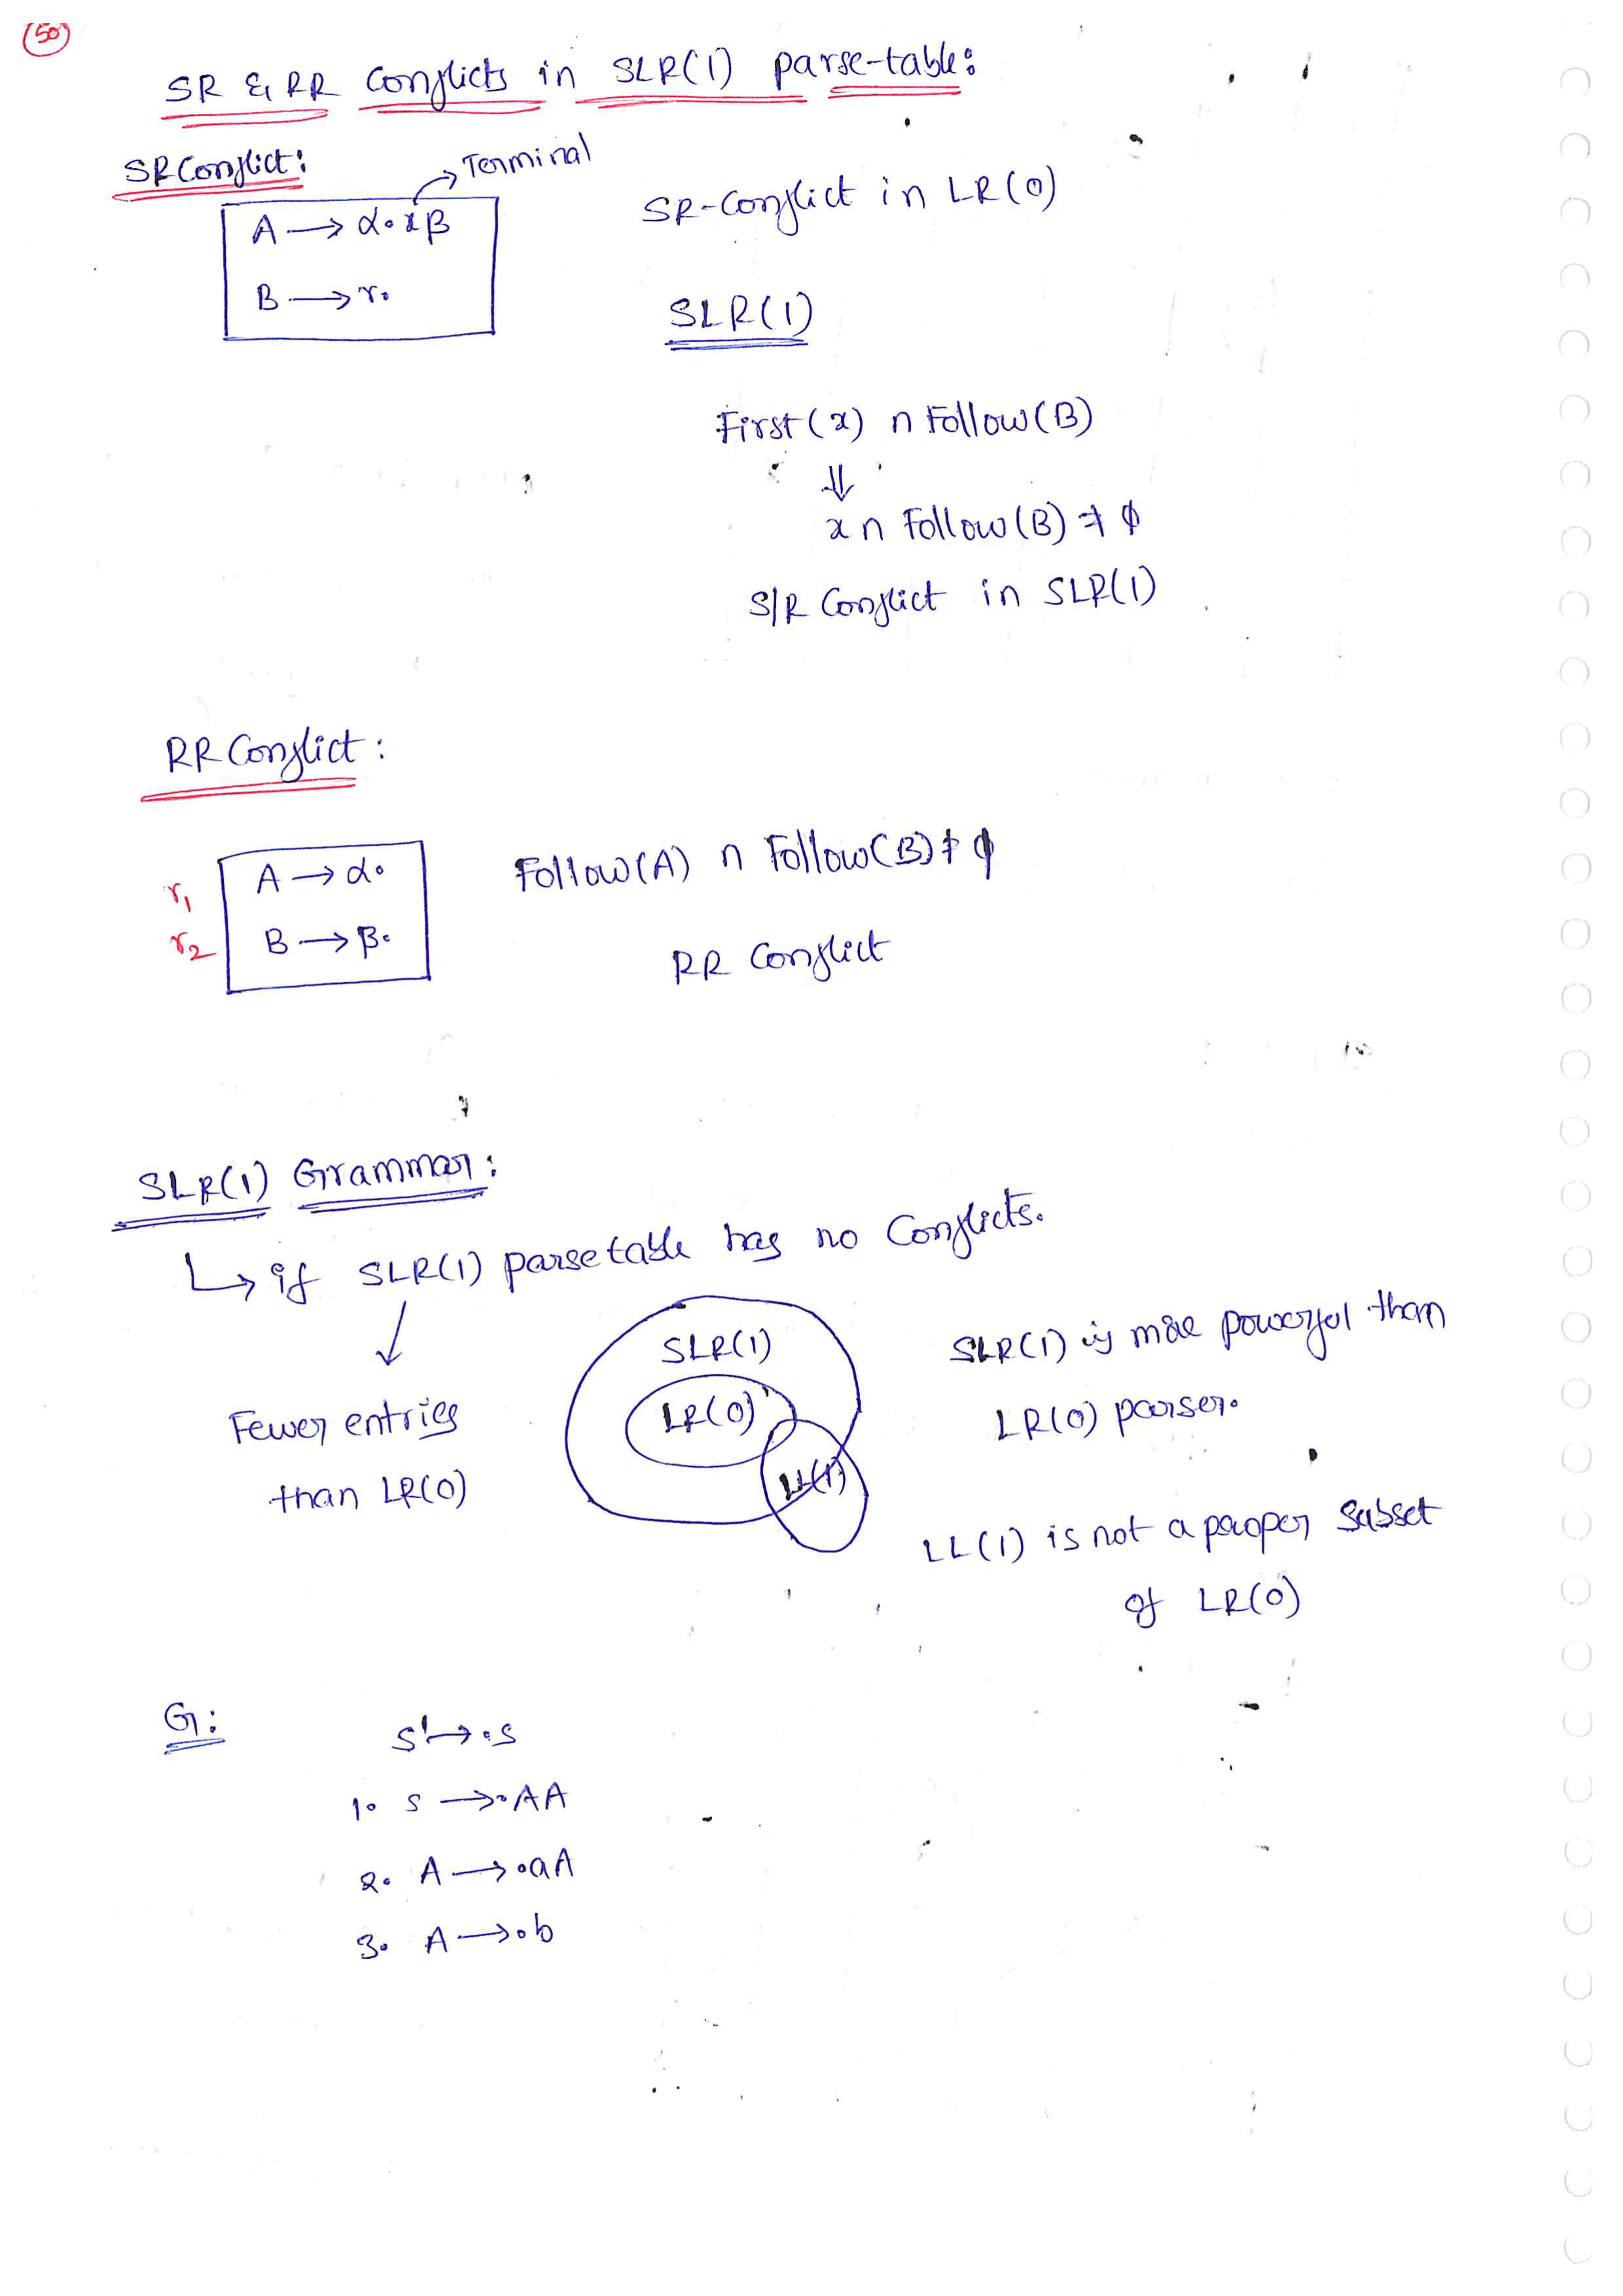 50
SR & RR Conflicts in SLR(1) parse-table:
SR Conflict:
Terminal
A → α.xβ
B → r.
SR-Conflict in LR(0)
SLR(1)
First(x) ∩ Follow(B)
⇓
x ∩ Follow(B) ≠ ϕ
S/R Conflict in SLR(1)
RR Conflict:
r1 A → α.
r2 B → β.
Follow(A) ∩ Follow(B) ≠ ϕ
RR Conflict
SLR(1) Grammar:
↳ if SLR(1) parse table has no Conflicts.
Fewer entries
than LR(0)
SLR(1)
LR(0)
LL(1)
SLR(1) is more powerful than
LR(0) parser.
LL(1) is not a proper subset
of LR(0)
G:
S' → .S
1. S → .AA
2. A → .aA
3. A → .b